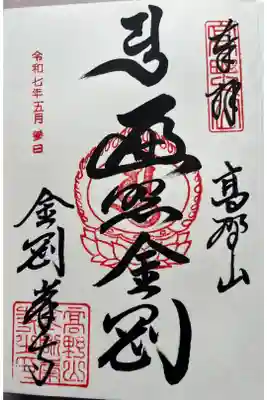 奉拝
高野山
遍照金剛
令和七年五月参日
金剛峯寺
高野山